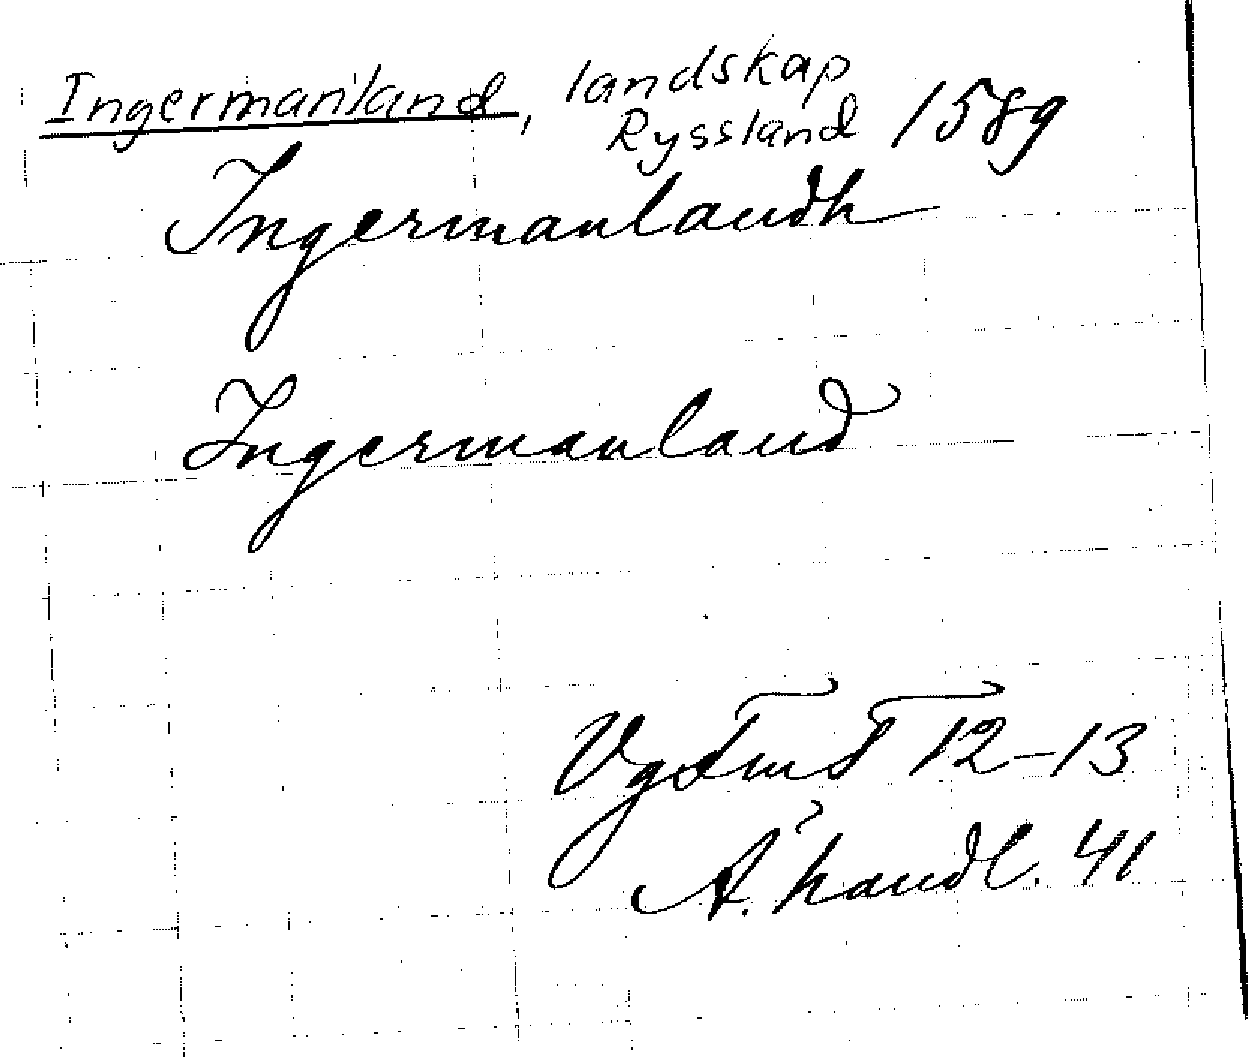 Ingermanland, landskap
Ryssland 1589
Ingermanlandh
Ingermanland
VgFmT 12-13
A. handl. 41